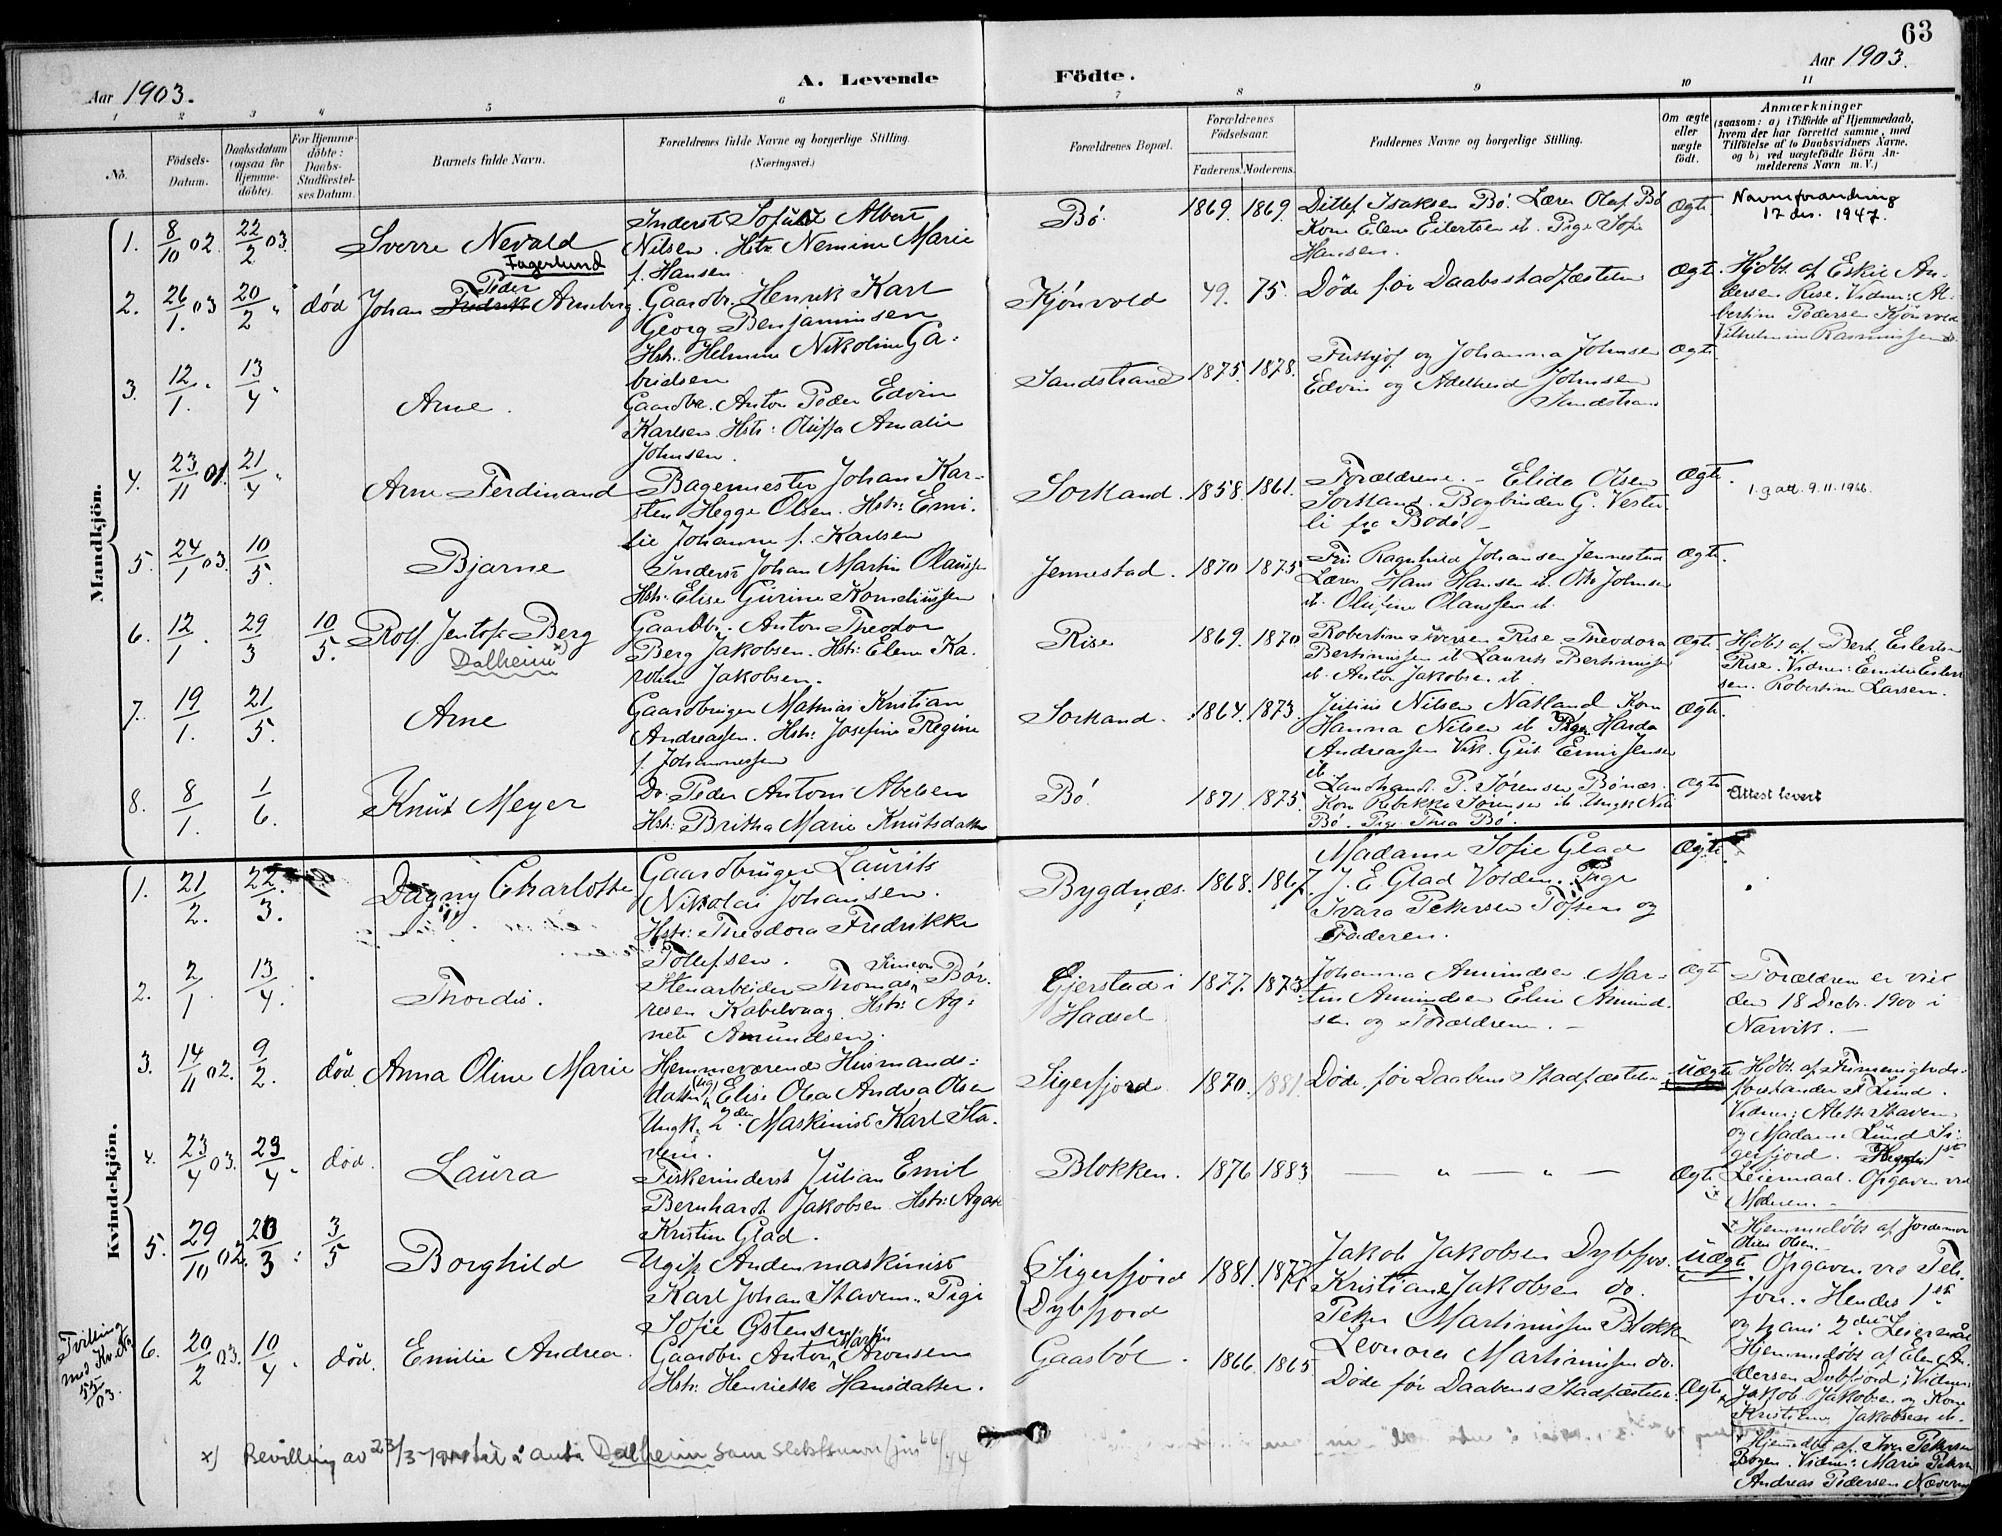 63
Aar 1903.
A. Levende Födte.
Aar 1903.
1 2 3 4 5 6 7 8 9 10 11
No.
Födsels-Datum.
Daabsdatum (ogsaa for Hjemme-döbte).
For Hjemme-döbte: Daabs-Stadfæstel-ses Datum.
Barnets fulde Navn.
Forældrenes fulde Navne og borgerlige Stilling. (Næringsvei.)
Forældrenes Bopæl.
Forældrenes Födselsaar.
Faderens. Moderens.
Faddernes Navne og borgerlige Stilling.
Om ægte eller uægte födt.
Anmærkninger
(saasom: a) i Tilfælde af Hjemmedaab,
hvem der har forrettet samme, med
Tilföielse af to Daabsvidners Navne,
og b) ved uægtefödte Börn An-
melderens Navn m. V.)
Mandkjön.
1. 8/10 02. 22/2 03. Sverre Nevald
Fagerlund
Inderst Sofus Albert
Nilsen. Hstr. Nemine Marie
f. Hansen
Bø. 1869. 1869.
Ditlef Isaksen Bø. Lærer Olaf Bø
Kone Elene Eilertsen ib. Pige Sofie
Hansen.
Ægte.
Navneforandring
12 des. 1947.
2. 26/1. 03 20/2 " død Johan Fredrik Peder Arneberg.
Gaardbr. Henrik Karl
Georg Benjaminsen
Hstr. Helmine Nikoline Ga-
brielsen
Kjönvold 49. 75. Døde før Daabsstadfæstelsen
Ægte.
Hjdbt. af Eskil An-
dersen Rise. Vidner: Al-
bertine Pedersen Kjönvold
Vilhelmine Rasmussen do.
3. 12/1. " 13/4 " Arne.
Gaardbr. Anton Peder Edvin
Karlsen. Hstr: Oluffa Amalie
Johnsen.
Sandstrand 1875. 1878.
Fritjof og Johanna Johnsen
Edvin og Adelheid Johnsen
Sandstrand
Ægte
4. 23/11 01. 21/4 " Arne Ferdinand
Bagermester Johan Kar-
sten Hegge Olsen. Hstr: Emi-
lie Johanne f. Karlsen
Sortland. 1858. 1861.
Forældrene. - Elida Olsen
Sortland. Bogbinder G. Vester-
li fra Bodö. -
Ægte.
1. g att. 9.11.1966.
5. 24/1 03. 10/5. Bjarne
Inderst Johan Martin Olaussen
Hstr: Elise Gurine Korneliussen
Jennestad. 1870 1875
Fru Ragnhild Johansen Jennestad
Lærer Hans Hansen ib. Otto Johnsen
ib. Olufine Olaussen ib.
Ægte.
6. 12/1 . 29/3 10/5. Rolf Jentoft Berg
Dalheim x)
Gaardbr. Anton Theodor
Berg Jakobsen. Hstr: Elene Ka-
roline Jakobsen.
Rise 1869. 1870
Robertine Iversen Rise Theodora
Bertinussen ib Laurits Bertinussen
ib. Anton Jakobsen ib.
Ægte.
Hjdbt af Bert. Eilertsen
Rise. Vidner: Emilie Eilert-
sen. Robertine Larsen.
7. 19/1. 21/5. Arne
Gaardbruger Mathias Kristian
Andreassen. Hstr: Josefine Regine
f. Johannessen
Sortland. 1864. 1873.
Julius Nilsen Natland Kone
Hanna Nilsen ib Pige Harda
Andreassen Vik. Gut Emil Jensen
ib
Ægte.
8. 8/1. 1/6. Knut Meyer
Do Peder Antoni Abelsen
Hstr: Britha Marie Knutsdatter
Bø. 1871. 1875.
Landhandl. P. Sørensen Bønæs.
Kone Rebekka Sørensen ib. Ungk Nils
Bø. Pige Thea Bø.
Ægte
Attest levert
Kvindekjön.
1. 21/2. 22/3. Dagny Charlotte
Gaardbruger Laurits
Nikolai Johansen.
Hstr: Theodora Fredrikke
Tollefsen.
Bygdnæs. 1868. 1867.
Madame Sofie Glad
J. E. Glad Volden. Pige
Ivara Pettersen Tofsen og
Faderen.
Ægte.
2. 2/1 13/4. Thordis.
Stenarbeider Thomas Simeon Bör-
resen Kabelvaag. Hstr: Ag-
nete Amundsen.
Gjerstad i
Hadsel
1877. 1873.
Johanna Amundsen Mar-
tin Amundsen Eline Amund-
sen og Forældrene. -
Ægte
Forældrene er viet
den 18 Decbr. 1900 i
Narvik. -
3. 14/11 02. 9/2. død. Anna Oline Marie
Hjemmeværende Husmands-
datter Elise Olea Andrea Olsen
Ungk. 2den Maskinist Karl Sta-
vem.
Sigerfjord 1870. 1881. Døde før Daabens Stadfæstelse.
Uægte
Hdbt. af Frimenigheds-
forstander Lund.
Vidner: Alette Stavem
og Madame Lund Si-
gerfjord. Hendes 1ste
Leiermaal. Opgaven ved
Moderen. -
4. 23/4 03. 29/4 " død. Laura
Fiskerinderst Julian Emil
Bernhard Jakobsen. Hstr: Agate
Kristine Glad.
Blokken. 1876 1883 — " — " —
Ægte x
x Hjemmedöbt af Jordemor
Otilie Olsen.
5. 29/10 02. 20/3 : 3/5 Borghild
Ugift Anden maskinist
Karl Johan Stavem. Pige
Sofie Østensen
Sigerfjord
Dybfjord
1881. 1877
Jakob Jakobsen Dybfjor.
Kristiane Jakobsen do.
Peter Martinussen Blokk
Leonora Martinussen do.
Uægte
Opgaven ved Tele-
fon. Hendes 1ste
og hans 2det Leiermaal
Hjemmedöbt af Elen An-
dersen Dybfjord; Vidner:
Jakob Jakobsen og Kone
Kristiane Jakobsen ib.
Tvilling
med Kv. No
55/03.
6. 20/2 03. 10/4 " død. Emilie Andrea.
Gaardbr Anton Martin Aronsen
Hstr: Henriette Hansdatter.
Gaasböl. 1866. 1865
Døde før Daabens Stadfæstelse.
Ægte x
x Hjemdbt af Iver Pettersen
Bogen. Vidner: Marie Pettersen
Andreas Pedersen
x) Bevilling av 23/3-1944 til å anta Dalheim som slektsnavn